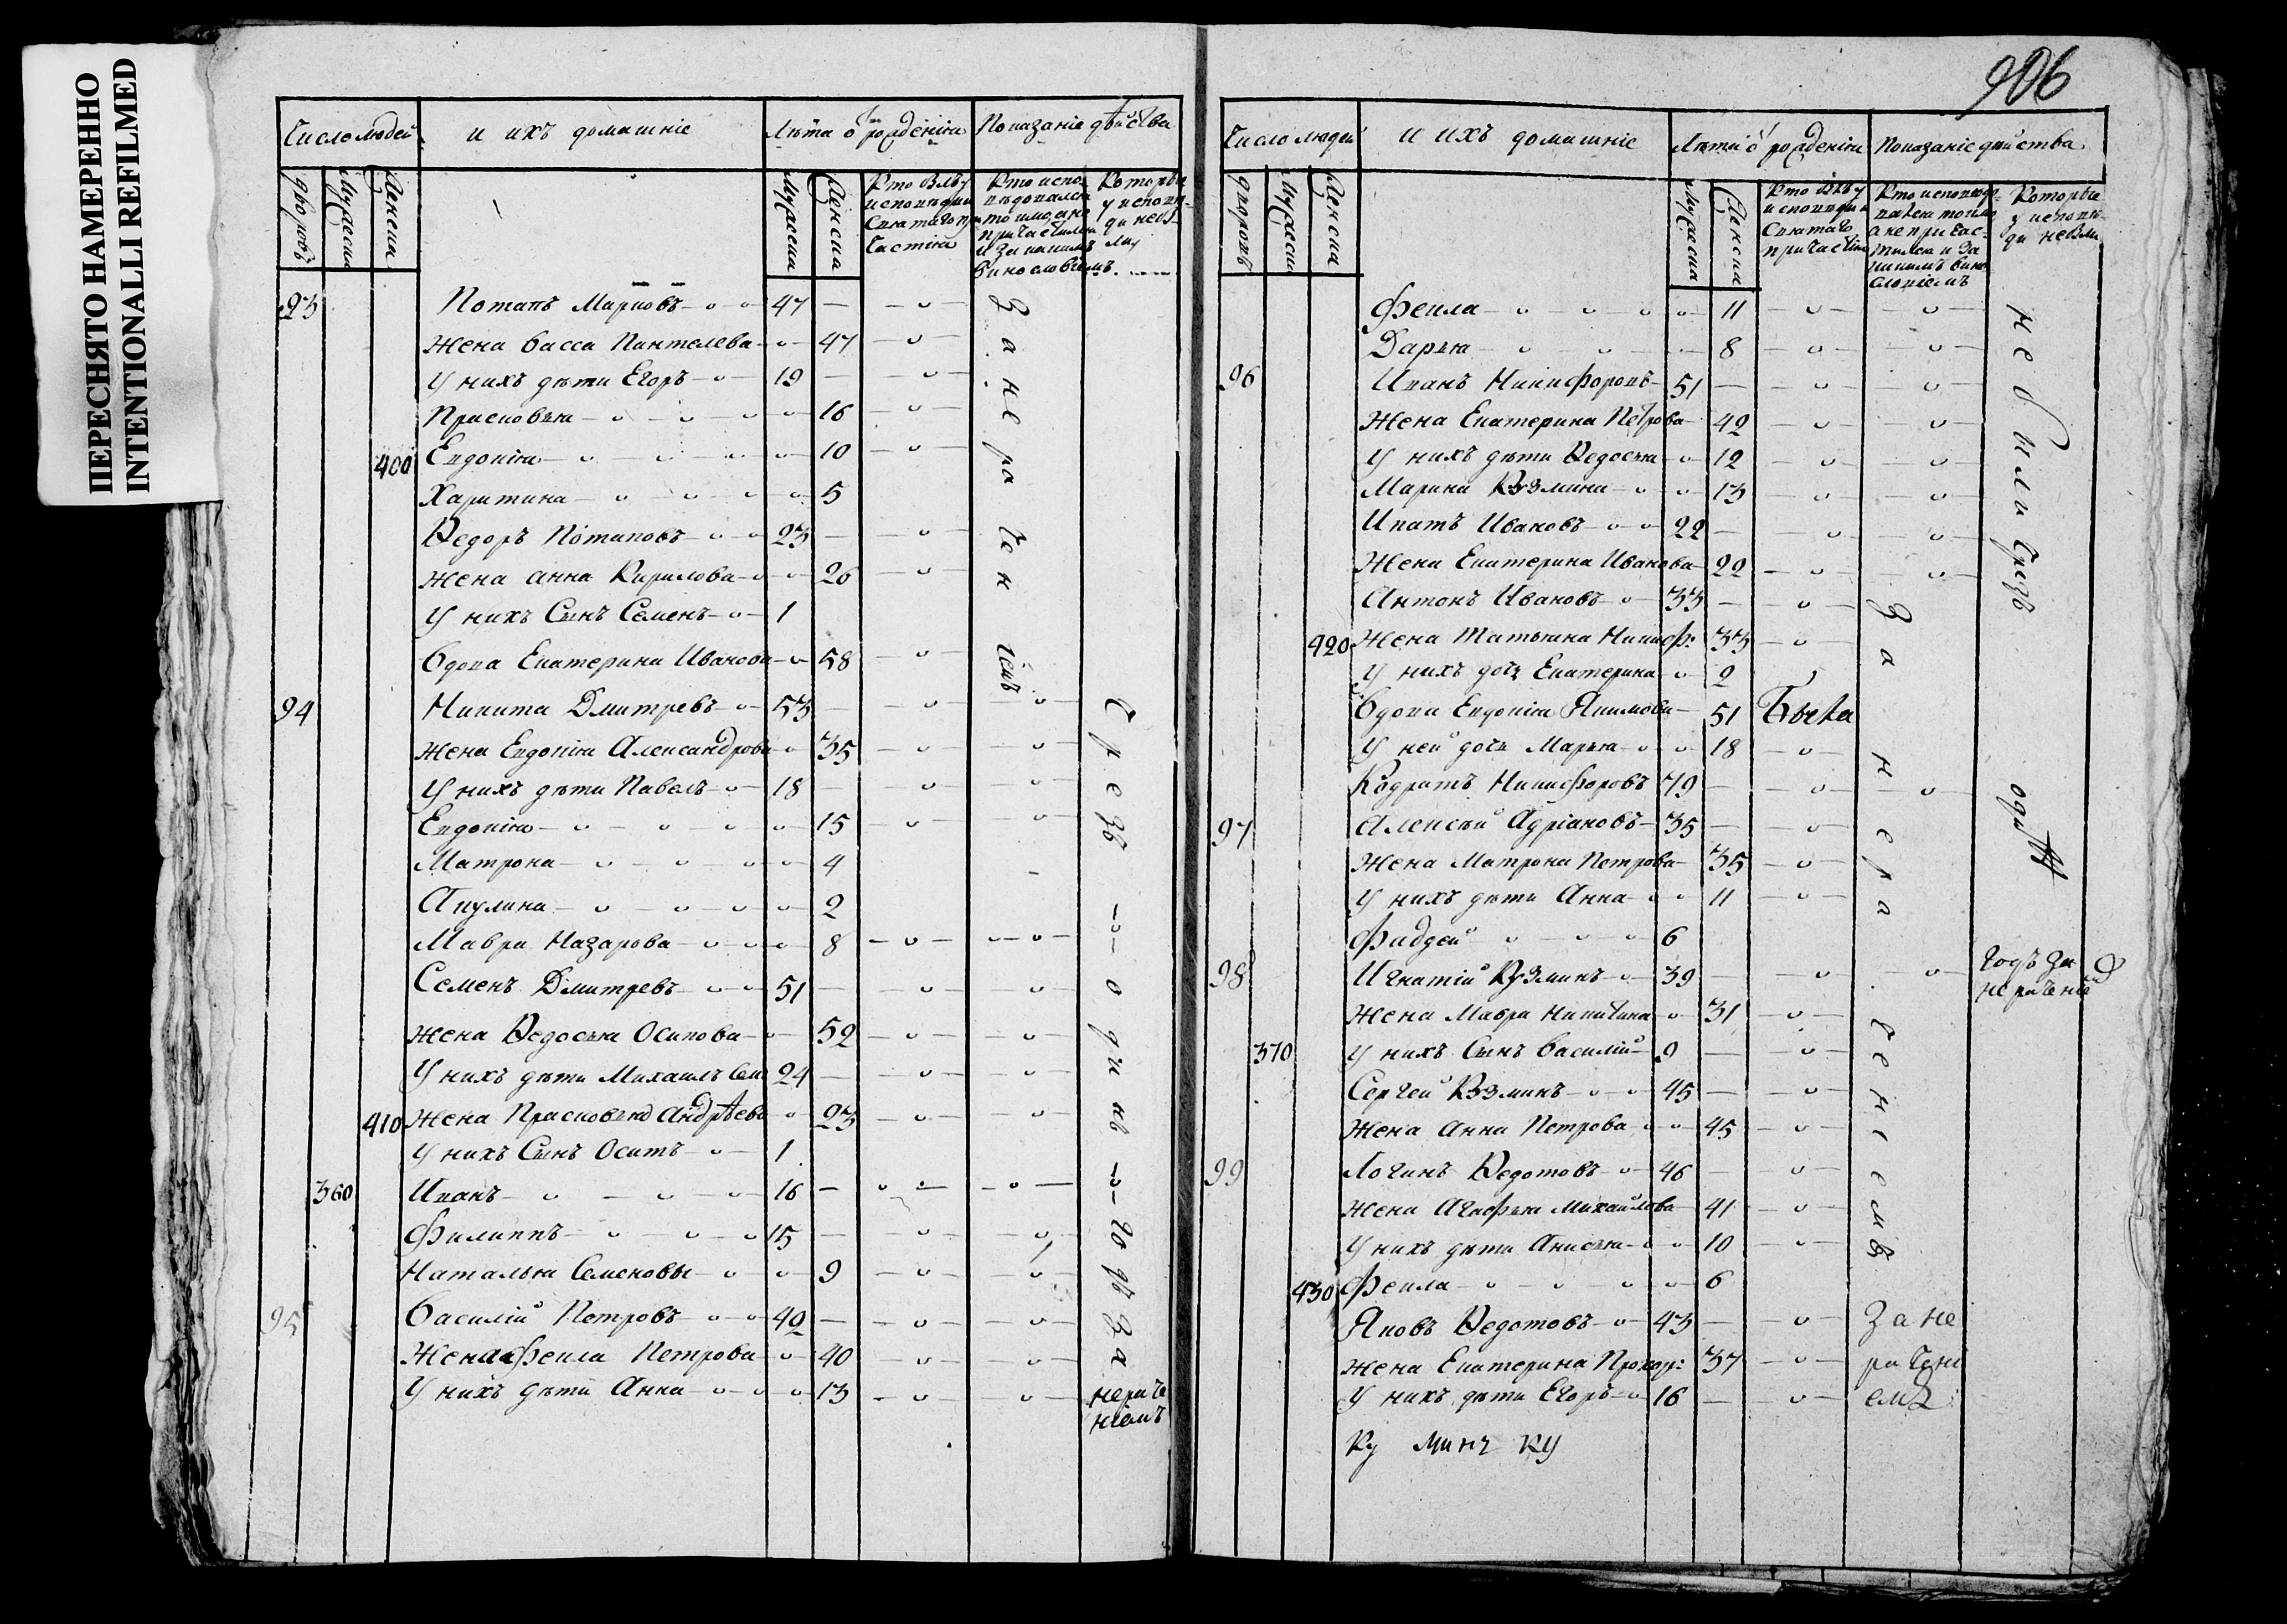 ПЕРЕСНЯТО НАМЕРЕННО
INTENTIONALLI REFILMED
Число людей и ихъ домашніе Лѣта ѿ рожденія Показаніе дѣйства
дворовъ Мужеска Женска Мужеска Женска
Кто былъ у исповѣди и Святаго причастія
93 Потапъ Марковъ 47
Жена Васса Пантелева 47
У нихъ дѣти Егоръ 19
Прасковья 16
400 Евдокія 10
Харитина 5
Ѳедоръ Потаповъ 23
Жена Анна Кирилова 26
У нихъ Сынъ Семенъ 1
Вдова Екатерина Иванова 58
За нерачен
94 Никита Дмитревъ 53
Жена Евдокія Александрова 35
У нихъ дѣти Павелъ 18
Евдокія 15
Матрона 4
Акулина 2
Мавра Назарова 8
Семенъ Дмитревъ 51
Жена Ѳедосья Осипова 52
У нихъ дѣти Михаилъ Сем 24
410 Жена Прасковья Андрѣева 23
У нихъ Сынъ Осипъ 1
360 Иванъ 16
Филиппъ 15
Наталья Семеновы 9
95 Василій Петровъ 42
Жена Фекла Петрова 40
У нихъ дѣти Анна 13
Чрезъ одинъ годъ за нераченіемъ
906
Число людей и ихъ домашніе Лѣта ѿ рожденія Показаніе дѣйства
дворовъ Мужеска Женска Мужеска Женска
Кто былъ у исповѣди и Святаго причастія
Фекла 11
Дарья 8
96 Иванъ Никифоровъ 51
Жена Екатерина Петрова 42
У нихъ дѣти Ѳедосья 12
Марина Кузмина 13
Ипатъ Ивановъ 22
Жена Екатерина Иванова 22
Антонъ Ивановъ 33
420 Жена Татьяна Никиф: 33
У нихъ дочь Екатерина 2
Вдова Евдокія Якимова 51
У ней дочь Марья 18
Кодратъ Никифоровъ 79
97 Алексѣй Адріановъ 35
Жена Матрона Петрова 35
У нихъ дѣти Анна 11
Фадей 6
98 Игнатій Кузминъ 39
Жена Мавра Никитина 31
370 У нихъ Сынъ Василій 9
Сергей Кузминъ 45
Жена Анна Петрова 45
99 Логинъ Ѳедотовъ 46
Жена Агафья Михайлова 41
У нихъ дѣти Анисья 10
430 Фекла 6
Яковъ Ѳедотовъ 43
Жена Екатерина Прохор: 37
У нихъ дѣти Егоръ 16
За нераченіемъ
не были чрезъ
годъ за
За не
рачені
емъ